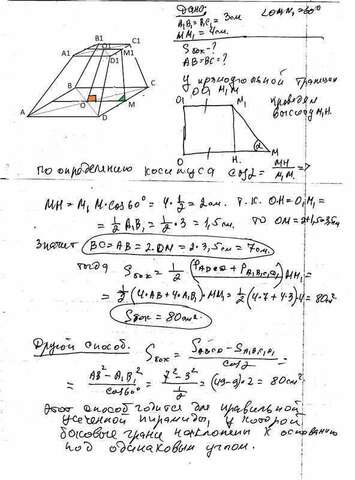 Дано:
A1B1 = B1C1 = 3см ∠OMM1=60°
MM1 = 4см.
Sбок - ?
AB=BC= ?
B1 C1
A1 O1 M1
D1
B C
O M
A D
У прямоугольной трапеции
OO1M1M проведем
высоту M1H.
O1 M1
O H. M
α
по определению косинуса cosα = MH/M1M =>
MH = M1M·cos60° = 4·1/2 = 2см. т.к. OH=O1M1=
= 1/2 A1B1 = 1/2·3 = 1,5см. то OM=2+1,5=3,5см
Значит BC=AB=2·OM=2·3,5см=7см.
тогда Sбок = 1/2 (PABCD + PA1B1C1D1) MM1 =
= 1/2 (4·AB+4·A1B1)·MM1 = 1/2 (4·7+4·3)·4 = 80см²
Sбок = 80см².
Другой способ. Sбок = (SABCD - SA1B1C1D1)/cosα =
= (AB² - A1B1²)/cos60° = (7² - 3²)/(1/2) = (49-9)·2 = 80см²
Этот способ годится для правильной
усеченной пирамиды, у которой
боковые грани наклонены к основанию
под одинаковым углом.